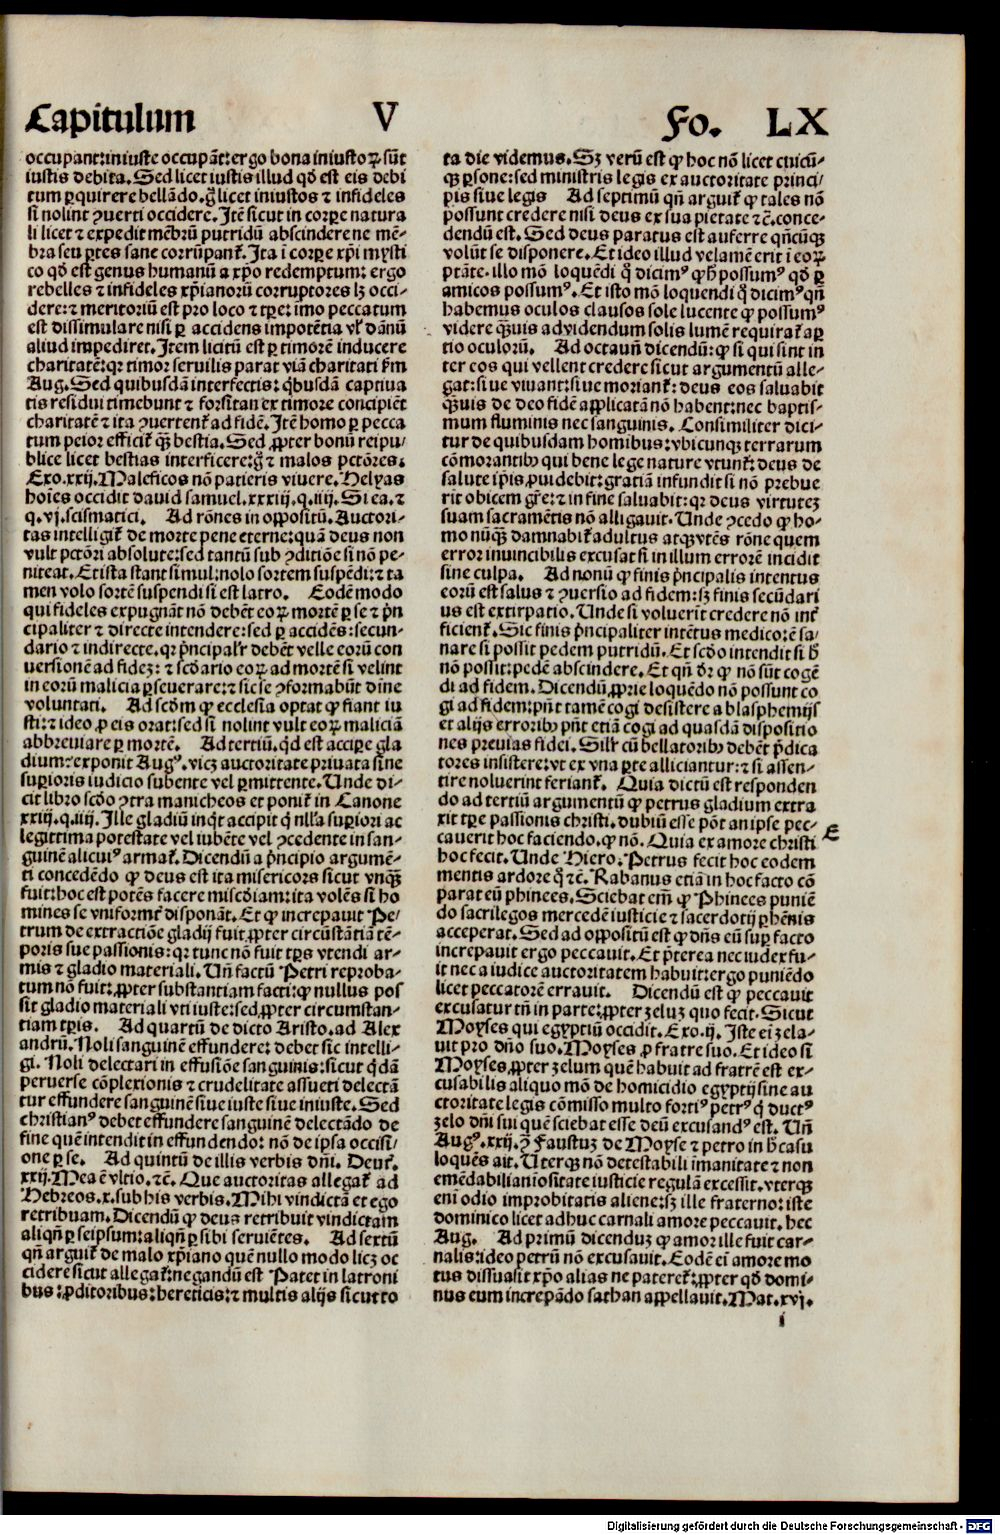 Capitulum V Fo. LX
occupant: iniuste occupāt: ergo bona iniustoꝝ sūt
iustis debita. Sed licet iustis illud qđ est eis debi
tum ꝑquirere bellādo. gͦ licet iniustos ⁊ infideles
si nolint ꝯuerti occidere. Itē sicut in corꝑe natura
li licet ⁊ expedit mēbrū putridū abscindere ne mē-
bra seu ꝑtes sane corrūpant᷑. Ita ī corꝑe xp̄i mysti
co qđ est genus humanū a xp̄o redemptum: ergo
rebelles ⁊ infideles xp̄ianorū corruptores lꝫ occi-
dere: ⁊ meritoriū est pro loco ⁊ tꝑe: imo peccatum
est dissimulare nisi ꝑ accidens impotētia vl̓ dānū
aliud impediret. Item licitū est ꝑ timorē inducere
charitatē: qꝛ timor seruilis parat viā charitati ẜm
Aug. Sed quibusdā interfectis: qͥbusdā captiua
tis residui timebunt ⁊ forsitan ex timore concipiēt
charitatē ⁊ ita ꝯuertent᷑ ad fidē. Itē homo ꝑ pecca
tum peior efficit᷑ qͣꝫ bestia. Sed ꝓpter bonū reipu/
blice licet bestias interficere: gͦ ⁊ malos pctōres.
Exo. xxij. Maleficos nō patieris viuere. Helyas
hoīes occidit dauid samuel. xxxiij. q. iiij. Si ea. ⁊
q. vj. scismatici. Ad rōnes in oppositū. Auctori-
tas intelligit᷑ de morte pene eterne: quā deus non
vult pctōri absolute: sed tantū sub ꝯditiōe si nō pe-
niteat. Et ista stant simul: nolo sortem suspēdi: ⁊ ta
men volo sortē suspendi si est latro. Eodē modo
qui fideles expugnāt nō debēt eoꝝ mortē ꝑ se ⁊ pͥn
cipaliter ⁊ directe intendere: sed ꝑ accidēs: secun-
dario ⁊ indirecte. qꝛ pͥncipal̓r debēt velle eorū con
uersionē ad fidez: ⁊ scđario eoꝝ ad mortē si velint
in eorū malicia ꝑseuerare: ⁊ sic se ꝯformabūt diīne
voluntati. Ad scđm ꝙ ecclesia optat ꝙ fiant iu
sti: ⁊ ideo ꝓ eis orat: sed si nolint vult eoꝝ maliciā
abbreuiare ꝑ mortē. Ad tertiū. qͥd est acciꝑe gla
dium: exponit Augꝰ. vicꝫ auctoritate priuata sine
suꝑioris iudicio iubente vel ꝑmittente. Unde di-
cit libro scđo ꝯtra manicheos et ponit᷑ in Canone
xxiij. q. iiij. Ille gladiū inqͥt accipit qͥ nll̓a suꝑiori ac
legittima potestate vel iubēte vel ꝯcedente in san-
guinē alicuiꝰ armat᷑. Dicendū a pͥncipio argumē-
ti concedēdo ꝙ deus est ita misericors sicut vnqͣꝫ
fuit: hoc est potēs facere miscđiam: ita volēs si ho
mines se vniformr̄ disponāt. Et ꝙ increpauit Pe/
trum de extractiōe gladij fuit ꝓpter circūstātiā tē-
poris sue passionis: qꝛ tunc nō fuit tp̄s vtendi ar-
mis ⁊ gladio materiali. Un̄ factū Petri reproba-
tum nō fuit: ꝓpter substantiam facti: ꝙ nullus pos
sit gladio materiali vti iuste: sed ꝓpter circumstan-
tiam tꝑis. Ad quartū de dicto Aristo. ad Alex
andrū. Noli sanguinē effundere: debet sic intelli-
gi. Noli delectari in effusiōe sanguinis: sicut qͥdā
peruerse cōplexionis ⁊ crudelitate assueti delectā
tur effundere sanguinē siue iuste siue iniuste. Sed
christianꝰ debet effundere sanguinē delectādo de
fine quē intendit in effundendo: nō de ipsa occisi/
one ꝑ se. Ad quintū de illis verbis dn̄i. Deut᷑.
xxij. Mea ē vltio. ⁊c̄. Que auctoritas allegat᷑ ad
Hebreos. x. sub his verbis. Mihi vindictā et ego
retribuam. Dicendū ꝙ deus retribuit vindictam
aliqn̄ ꝑ seipsum: aliqn̄ ꝑ sibi seruiētes. Ad sextū
qn̄ arguit᷑ de malo xp̄iano quē nullo modo licꝫ oc
cidere sicut allegat᷑: negandū est Patet in latroni
bus: ꝓditoribus: hereticis: ⁊ multis alijs sicut to
ta die videmus. Sꝫ verū est ꝙ hoc nō licet cuicū-
qꝫ ꝑsone: sed ministris legis ex auctoritate princi/
pis siue legis Ad septimū qn̄ arguit᷑ ꝙ tales nō
possunt credere nisi deus ex sua pietate ⁊c̄. conce-
dendū est. Sed deus paratus est auferre qn̄cūqꝫ
volūt se disponere. Et ideo illud velamē erit ī eoꝝ
ptāte. illo mō loquēdi qͦ dicimꝰ ꝙ ħ possumꝰ qđ ꝑ
amicos possumꝰ. Et isto mō loquendi qͦ dicimꝰ qn̄
habemus oculos clausos sole lucente ꝙ possumꝰ
videre qͣꝫuis ad videndum solis lumē requirat᷑ aꝑ
tio oculorū. Ad octauū dicendū: ꝙ si qui sint in
ter eos qui vellent credere sicut argumentū alle-
gat: siue viuant: siue moriant᷑: deus eos saluabit
qͣꝫuis de deo fidē applicatā nō habent: nec baptis-
mum fluminis nec sanguinis. Consimiliter dici-
tur de quibusdam hominibus: vbicunqꝫ terrarum
cōmorantibꝫ qui bene lege nature vtunt᷑: deus de
salute ip̄is ꝓuidebit: gratiā infundit si nō prebue
rīt obicem gr̄e: ⁊ in fine saluabit: qꝛ deus virtutez
suam sacramētis nō alligauit. Unde ꝯcedo ꝙ ho-
mo nūqͣꝫ damnabit᷑ adultus atqꝫ vtēs rōne quem
error inuincibilis excusat si in illum errorē incidit
sine culpa. Ad nonū ꝙ finis pͥncipalis intentus
eorū est salus ⁊ ꝯuersio ad fidem: sꝫ finis secūdari
us est extirpatio. Unde si voluerīt credere nō int᷑
ficient᷑. Sic finis pͥncipaliter intētus medicorē sa/
nare si possit pedem putridū. Et scđo intendit si ħ
nō possit: pedē abscindere. Et qn̄ dr̄ ꝙ nō sūt cogē
di ad fidem. Dicendū ꝓprie loquēdo nō possunt co
gi ad fidem: pn̄t tamē cogi desistere a blasphemijs
et alijs erroribꝫ pn̄t etiā cogi ad quasdā dispositio
nes preuias fidei. Sil̓r cū bellatoribꝫ debēt pͥdica
tores insistere: vt ex vna ꝑte alliciantur: ⁊ si assen-
tire noluerint feriant᷑. Quia dictū est responden
do ad tertiū argumentū ꝙ petrus gladium extra
xit tꝑe passionis christi. dubiū esse pōt an ipse pec-
cauerit hoc faciendo. ꝙ nō. Quia ex amore christi
E
hoc fecit. Unde Hiero. Petrus fecit hoc eodem
mentis ardore qͦ ⁊c̄. Rabanus etiā in hoc facto cō
parat eū phinees. Sciebat em̄ ꝙ Phinees puniē
do sacrilegos mercedē iusticie ⁊ sacerdotij ꝑhēnis
acceperat. Sed ad oppositū est ꝙ dn̄s eū suꝑ facto
increpauit ergo peccauit. Et pͥterea nec iudex fu-
it nec a iudice auctoritatem habuit: ergo puniēdo
licet peccatorē errauit. Dicendū est ꝙ peccauit
excusatur tn̄ in parte: ꝓpter zeluz quo fecit. Sicut
Moyses qui egyptiū occidit. Exo. ij. Iste ei᷑ zela-
uit pro dn̄o suo. Moyses ꝓ fratre suo. Et ideo si
Moyses ꝓpter zelum quē habuit ad fratrē est ex-
cusabilis aliquo mō de homicidio egyptij sine au
ctoritate legis cōmisso multo fortiꝰ petrꝰ qͥ ductꝰ
zelo dn̄i sui quē sciebat esse deū excusandꝰ est. Un̄
Augꝰ. xxij. ꝯͣ Faustuz de Moyse ⁊ petro in ħ casu
loquēs ait. Uterqꝫ nō detestabili īmanitate ⁊ non
emēdabili aniositate iusticie regulā excessit. vterqꝫ
eni̅ odio improbitatis aliene: sꝫ ille fraterno: iste
dominico licet adhuc carnali amore peccauit. hec
Aug. Ad primū dicenduz ꝙ amor ille fuit car-
nalis: ideo petrū nō excusauit. Eodē ei᷑ amore mo
tus dissuasit xp̄o alias ne pateret᷑: ꝓpter qđ domi-
nus eum increpādo sathan appellauit. Mat. xvj.
i
Digitalisierung gefördert durch die Deutsche Forschungsgemeinschaft - DFG